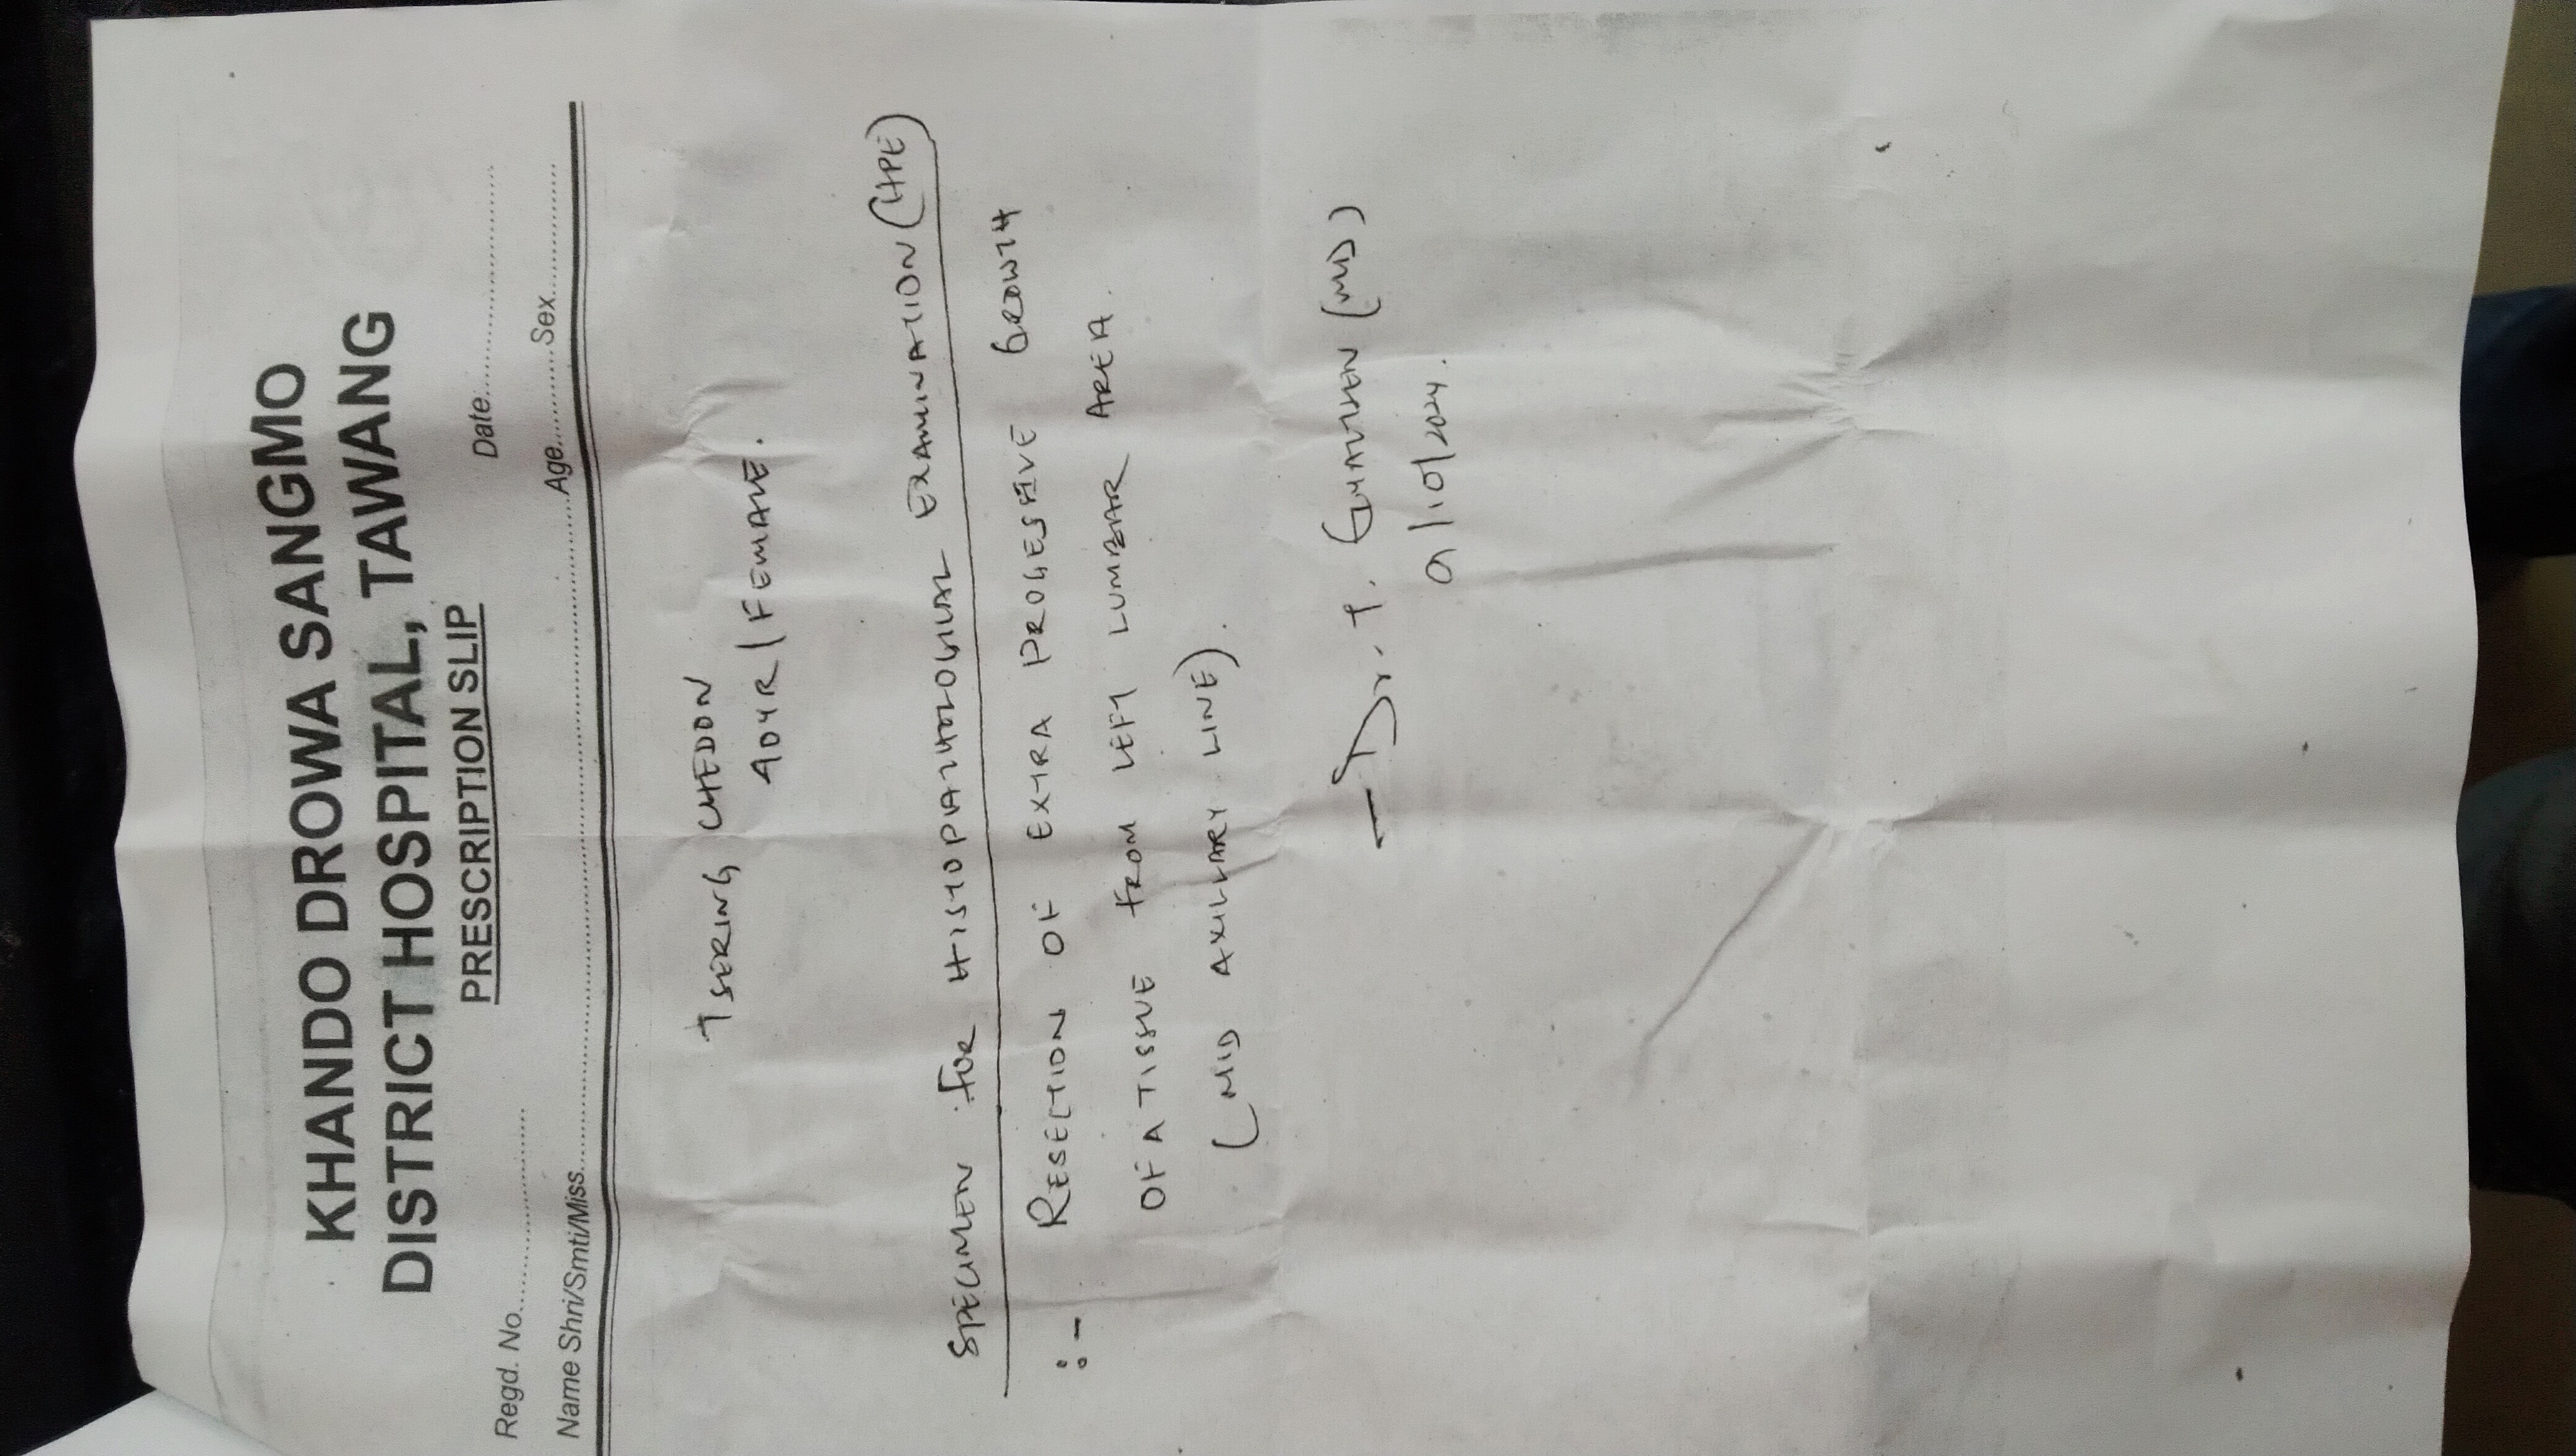 KHANDO DROWA SANGMO
DISTRICT HOSPITAL, TAWANG
PRESCRIPTION SLIP
Regd. No.................... Date....................
Name Shri/Smti/Miss.................... Age............ Sex............
TSERING CHEDON
40YR/FEMALE.
SPECIMEN for HISTOPATHOLOGICAL EXAMINATION (HPE)
:- RESECTION OF EXTRA PROGESSIVE GROWTH
OF A TISSUE FROM LEFT LUMBAR AREA.
(MID AXILLARY LINE).
— Dr. T. (MD)
9/10/2024.